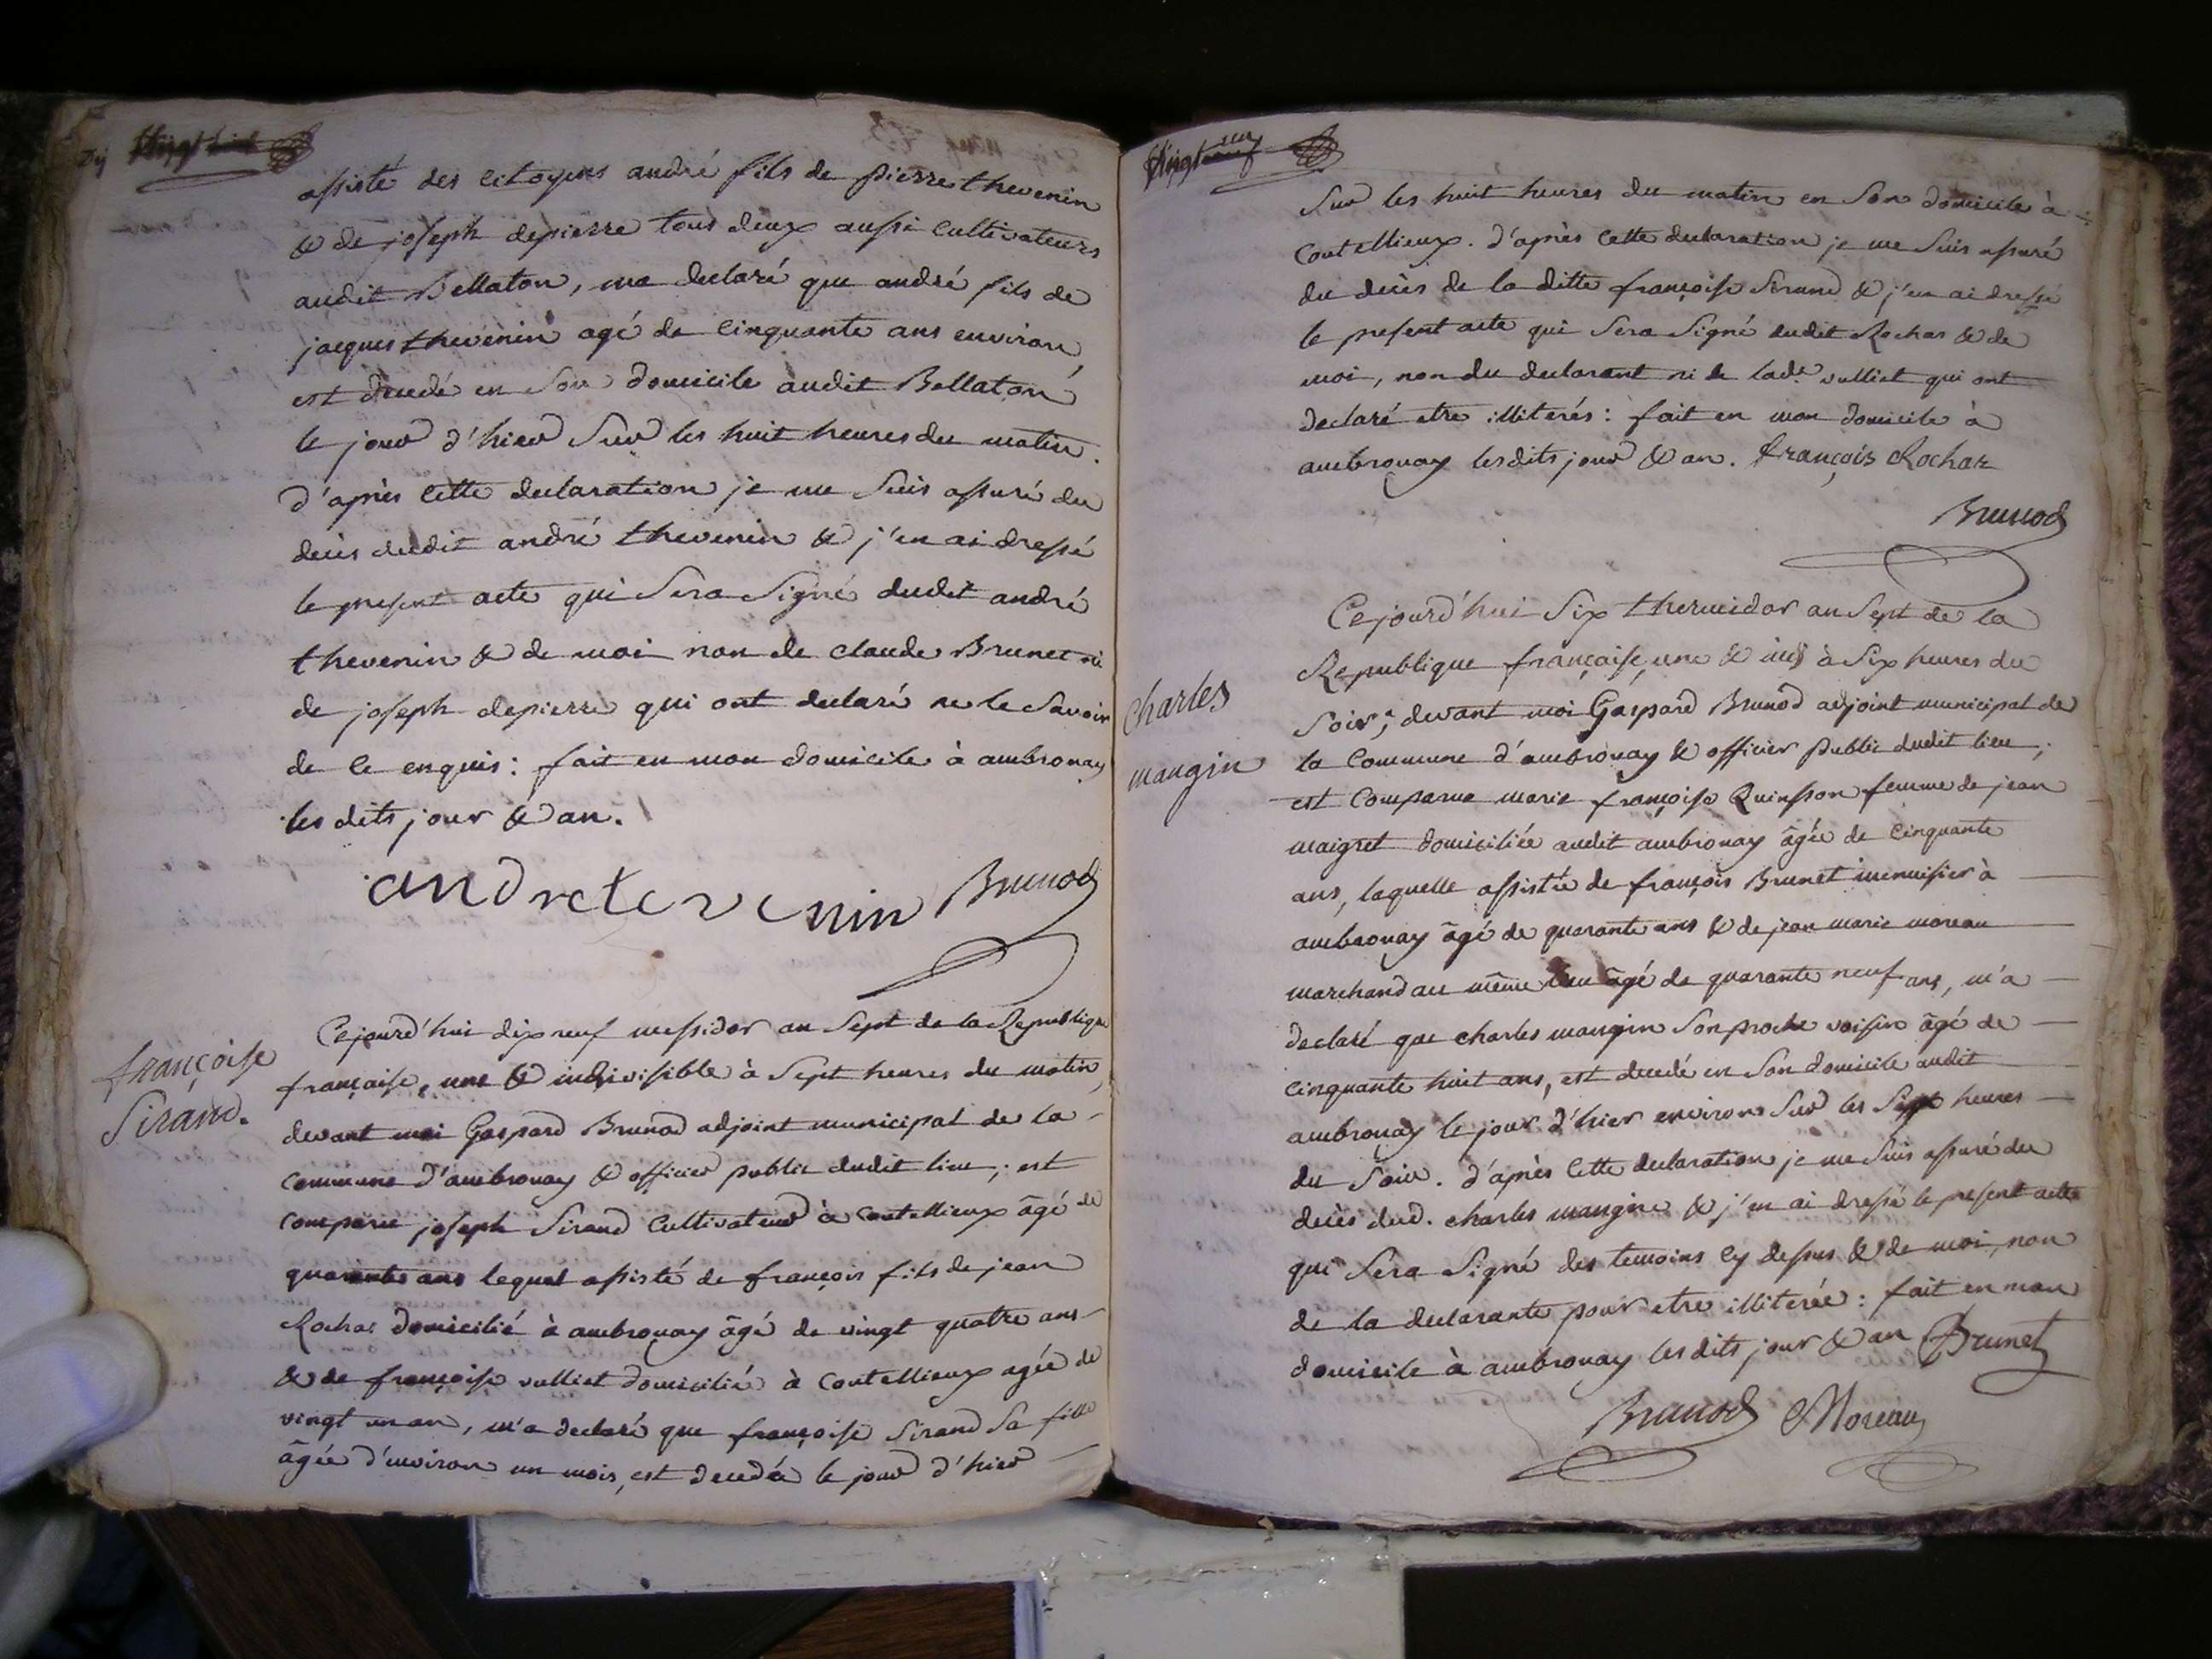 assisté des citoyens andré fils de pierre thevenin
& de joseph depierre tous deux aussi cultivateurs
audit Bellaton, ma declaré que andré fils de
jacques thevenin agé de cinquante ans environ
est decedé en son domicile audit Bellaton
le jour d'hier sur les huit heures du matin.
d'après cette declaration je me suis assuré du
decès dudit andré thevenin & j'en ai dressé
le present acte qui sera signé dudit andré
thevenin & de moi non de claude Brunet ni
de joseph depierre qui ont declaré ne le savoir
de ce enquis : fait en mon domicile à ambronay
les dits jour & an.
andretevenin Brunod
françoise
Sirand.
Cejourd'hui dix neuf messidor an sept de la Republique
française, une & indivisible à sept heures du matin,
devant moi Gaspard Brunod adjoint municipal de la
commune d'ambronay & officier public dudit lieu ; est
comparu joseph Sirand cultivateur à coutellieux âgé de
quarante ans lequel assisté de françois fils de jean
Rochas domicilié à ambronay âgé de vingt quatre ans
& de françoise vulliet domiciliée à coutellieux agée de
vingt un an, m'a declaré que françoise Sirand sa fille
âgée d'environ un mois, est decedée le jour d'hier
sur les huit heures du matin en son domicile à
coutellieux. d'après cette declaration je me suis assuré
du decès de la ditte françoise Sirand & j'en ai dressé
le present acte qui sera signé dudit Rochas & de
moi, non du declarant ni de lade vulliet qui ont
declaré etre illiterés : fait en mon domicile à
ambronay lesdits jour & an. françois Rochas
Brunod
charles
mangin
Cejourd'hui six thermidor an sept de la
Republique française, une & ind à six heures du
soir ; devant moi Gaspard Brunod adjoint municipal de
la commune d'ambronay & officier public dudit lieu ;
est comparue marie françoise Quinsson femme de jean
maigret domiciliée audit ambronay âgée de cinquante
ans, laquelle assistée de françois Brunet menuisier à
ambronay âgé de quarante ans & de jean marie moreau
marchand au même lieu âgé de quarante neuf ans, m'a
declaré que charles mangin son proche voisin âgé de
cinquante huit ans, est decedé en son domicile audit
ambronay le jour d'hier environ sur les sept heures
du soir. d'après cette declaration je me suis assuré du
decès dud. charles mangin & j'en ai dressé le present acte
qui sera signé des temoins cy dessus & de moi, non
de la declarante pour etre illiterée : fait en mon
domicile à ambronay les dits jour & an Brunet
Brunod Moreau